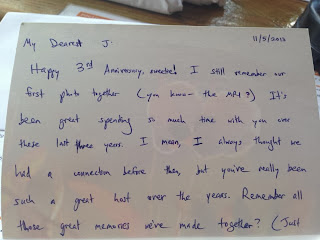 11/5/2013
My Dearest J.
Happy 3rd Anniversary, sweetie! I still remember our
first photo together (you know - the MRI?) It's
been great spending so much time with you over
these last three years. I mean, I always thought we
had a connection before then, but you've really been
such a great host over the years. Remember all
those great memories we've made together? (Just